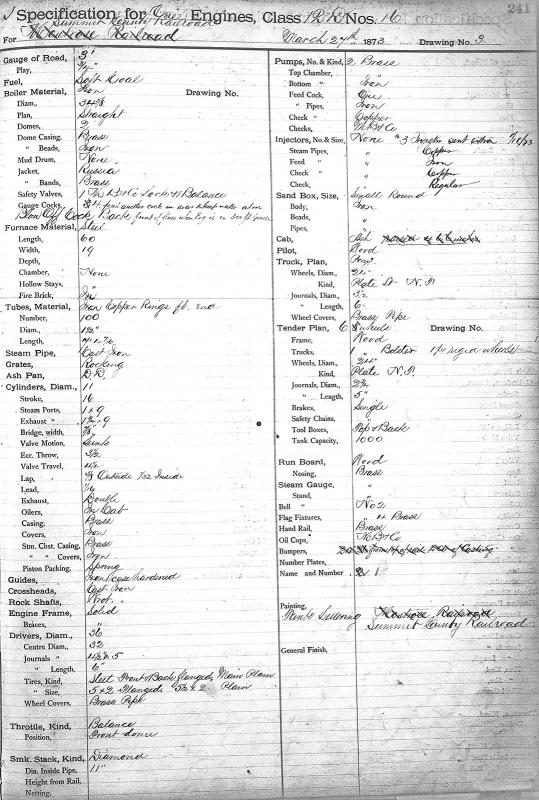 241
1 Specification for One Engines, Class 12 D Nos. 16
Summit County Railroad
For Montrose Railroad March 27th 1873 Drawing No. 3
Gauge of Road, 3'
Play,
Fuel, Soft Coal
Boiler Material, Iron Drawing No.
Diam.,
Plan, Straight
Domes, 2
Dome Casing, Brass
" Beads, Iron
Mud Drum, None
Jacket, Russia
" Bands, Brass
Safety Valves, 1 Lock & Balance
Gauge Cocks,
Blow Off Cock Back
Furnace Material, Steel
Length, 60
Width, 19
Depth,
Chamber, None
Hollow Stays, "
Fire Brick,
Tubes, Material, Iron Copper Rings fb. End
Number, 100
Diam., 1½"
Length,
Steam Pipe, Cast Iron
Grates, Rocking
Ash Pan, D.R.
Cylinders, Diam., 11
Stroke, 16
Steam Ports, 1 x 9
Exhaust " x 9
Bridge, width,
Valve Motion, Link
Ecc. Throw, 3½
Valve Travel,
Lap, Outside 1/32 Inside
Lead, 1/16
Exhaust, Double
Oilers, In Cab
Casing, Brass
Covers, Iron
Stm. Chst. Casing, Brass
" " Covers, Iron
Piston Packing, Spring
Guides, Iron case hardened
Crossheads, Cast Iron
Rock Shafts, Wrot.
Engine Frame, Solid
Braces, "
Drivers, Diam., 36
Centre Diam., 32
Journals " 5
" Length, 6"
Tires, Kind, Steel Front & Back flanged, Main Plain
" Size, 5 x 2 Flanged 5½ x 2 Plain
Wheel Covers, Brass Pipe
Throttle, Kind, Balance
Position, Front dome
Smk. Stack, Kind, Diamond
Dia. Inside Pipe, 11"
Height from Rail,
Netting,
Pumps, No. & Kind, 2 Brass
Top Chamber, "
Bottom " Iron
Feed Cock, One
" Pipes, Iron
Check " Copper
Checks, M.B. & Co
Injectors, No. & Size, None
Steam Pipes, " Copper
Feed " " Iron
Check " " Copper
Check, " Regular
Sand Box, Size, Small Round
Body, Iron
Beads, "
Pipes, "
Cab, Ash
Pilot, Wood
Truck, Plan,
Wheels, Diam., 24"
Kind, Plate N.P.
Journals, Diam., 3½
" Length, 6
Wheel Covers, Brass Pipe
Tender Plan, 6 wheels Drawing No.
Frame, Wood
Trucks, 1 Bolster 1 pr rigid wheels
Wheels, Diam., 24"
Kind, Plate N.P.
Journals, Diam., 2¾
" Length, 5"
Brakes, Single
Safety Chains, "
Tool Boxes, Top & Back
Tank Capacity, 1000
Run Board, Wood
Nosing, Brass
Steam Gauge, "
Stand, "
Bell " No 2
Flag Fixtures, 4 Brass
Hand Rail, Brass
Oil Cups, M.B. & Co
Bumpers,
Number Plates,
Name and Number 1
Painting, Lettering Montrose Railroad
Summit County Railroad
General Finish,